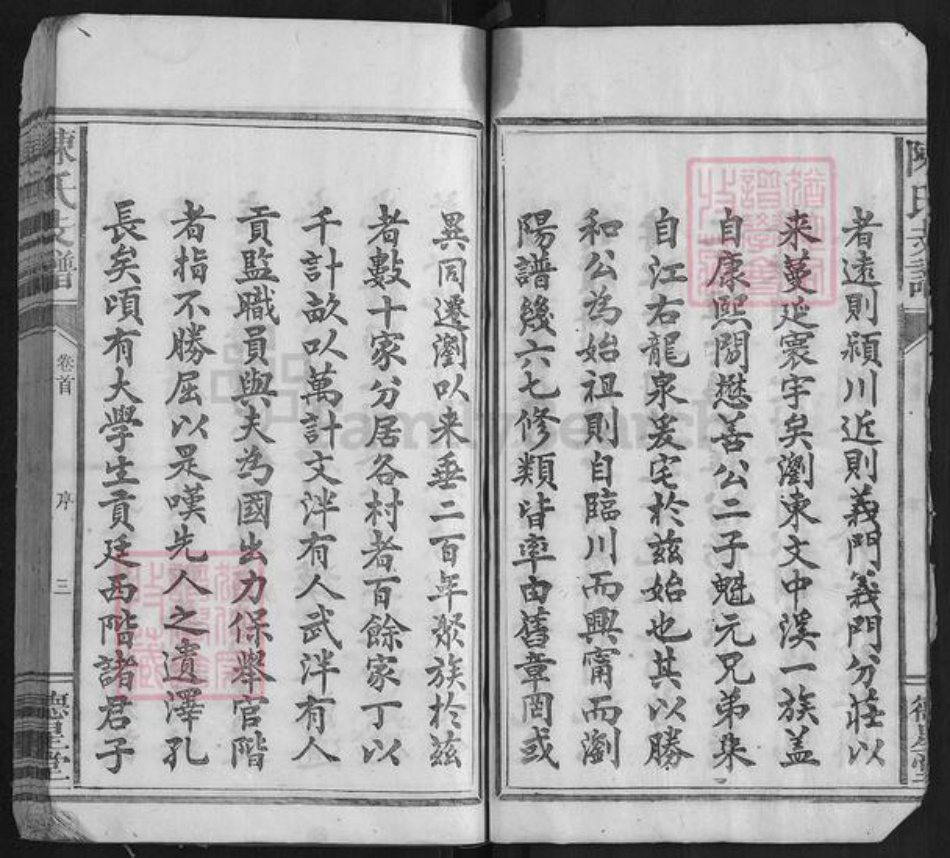 者遠則潁川近則義門義門分莊以
来蔓延寰宇矣瀏東文中溪一族盖
自康熙間懋善公二子魁元兄弟集
自江右龍泉爰宅於兹始也其以勝
和公為始祖則自臨川而興甯而瀏
陽譜幾六七修類皆率由舊章罔或
異同遷瀏以来垂二百年聚族於兹
者數十家分居各村者百餘家丁以
千計畝以萬計文泮有人武泮有人
貢監職員與夫為國出力保舉官階
者指不勝屈以是嘆先人之遺澤孔
長矣頃有大學生貢廷西階諸君子
陳氏支譜
卷首
序
三
德星堂
familysearch